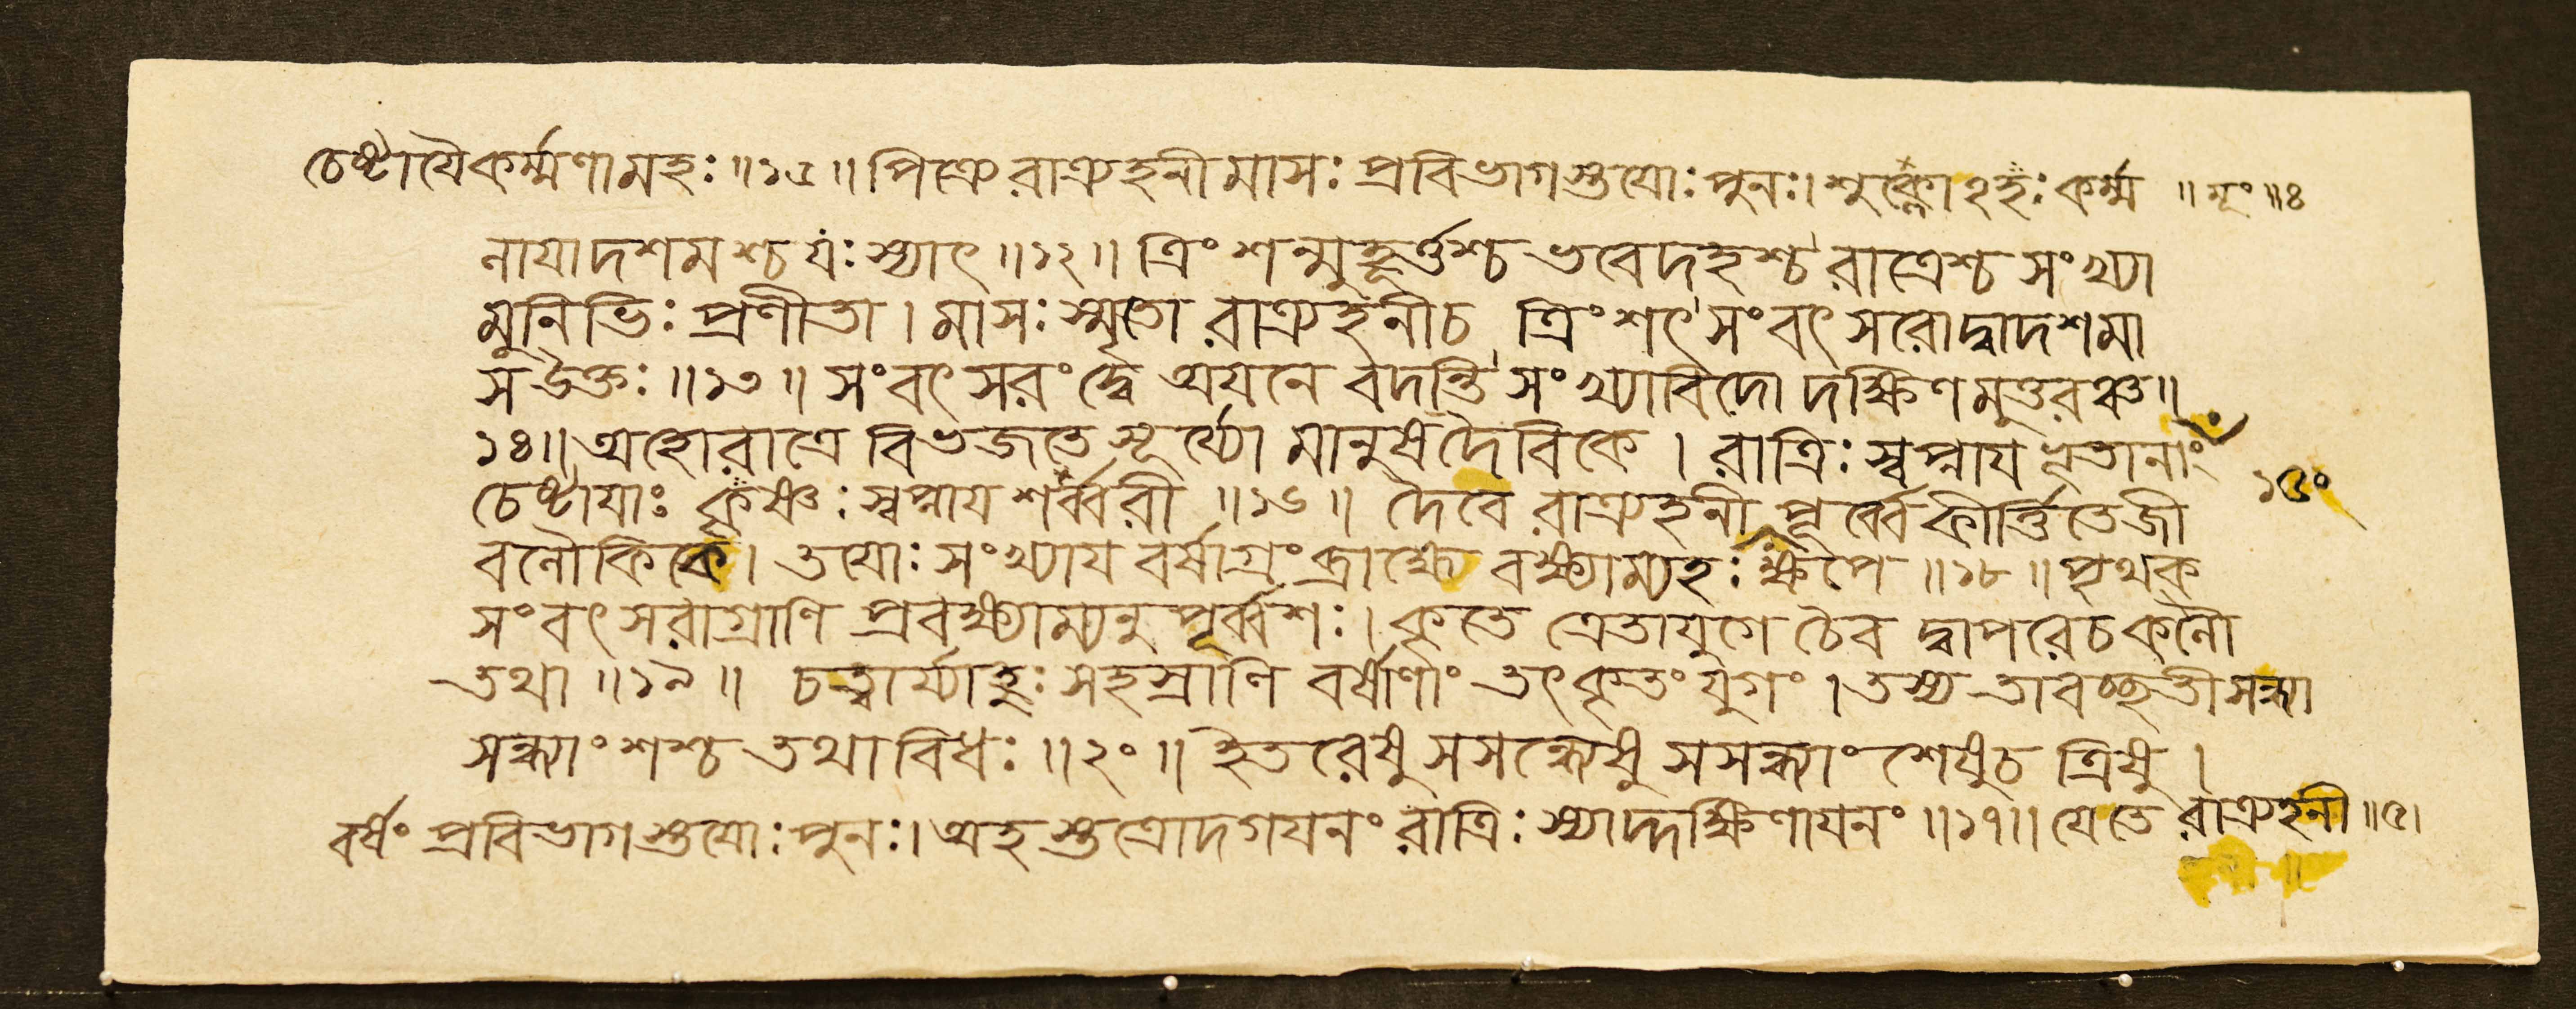 চেষ্টাযৈকর্ম্মণামহঃ ॥১৫॥ পিত্রে রাত্র্যহনী মাসঃ প্রবিভাগস্তুযোঃ পুনঃ। শুক্লোঽহঃ কর্ম্ম ॥ মূং ॥৪
নাযাদশমশ্চ যঃ স্যাৎ ॥১২॥ ত্রিংশন্মুহূর্ত্তশ্চ ভবেদহশ্চ রাত্রেশ্চ সংখ্যা
মুনিভিঃ প্রণীতা। মাসঃ স্মৃতো রাত্র্যহনী চ ত্রিংশৎ সংবৎসরো দ্বাদশমা
স উক্তঃ ॥১৩॥ সংবৎসরং দ্বে অয়নে বদন্তি সংখ্যাবিদো দক্ষিণমুত্তরঞ্চ॥
১৪॥ অহোরাত্রে বিভজতে সূর্য্যো মানুষদৈবিকে । রাত্রিঃ স্বপ্নায ভূতানাং
চেষ্টাযাঃ কৃষ্ণঃ স্বপ্নায শর্ব্বরী ॥১৬॥ দৈবে রাত্র্যহনী পূর্ব্বে কীর্ত্তিতে জী ১৫০
বলৌকিকে। তযোঃ সংখ্যায বর্ষাগ্রং ব্রাহ্মে বক্ষ্যাম্যহঃ ক্ষপে ॥১৮॥ পৃথক
সংবৎসরাগ্রাণি প্রবক্ষ্যাম্যনুপূর্ব্বশঃ। কৃতে ত্রেতাযুগে চৈব দ্বাপরে চ কলৌ
তথা ॥১৯॥ চত্বার্য্যাহুঃ সহস্রাণি বর্ষাণাং তৎকৃতং যুগং। তস্য তাবচ্ছতী সন্ধ্যা
সন্ধ্যাংশশ্চ তথাবিধঃ ॥২০॥ ইতরেষু সসন্ধ্যেষু সসন্ধ্যাংশেষু চ ত্রিষু।
বর্ষং প্রবিভাগস্তুযোঃ পুনঃ। অহস্তুত্রোদগযনং রাত্রিঃ স্যাদ্দক্ষিণাযনং ॥১৭॥ যে তে রাত্র্যহনী ॥৫।